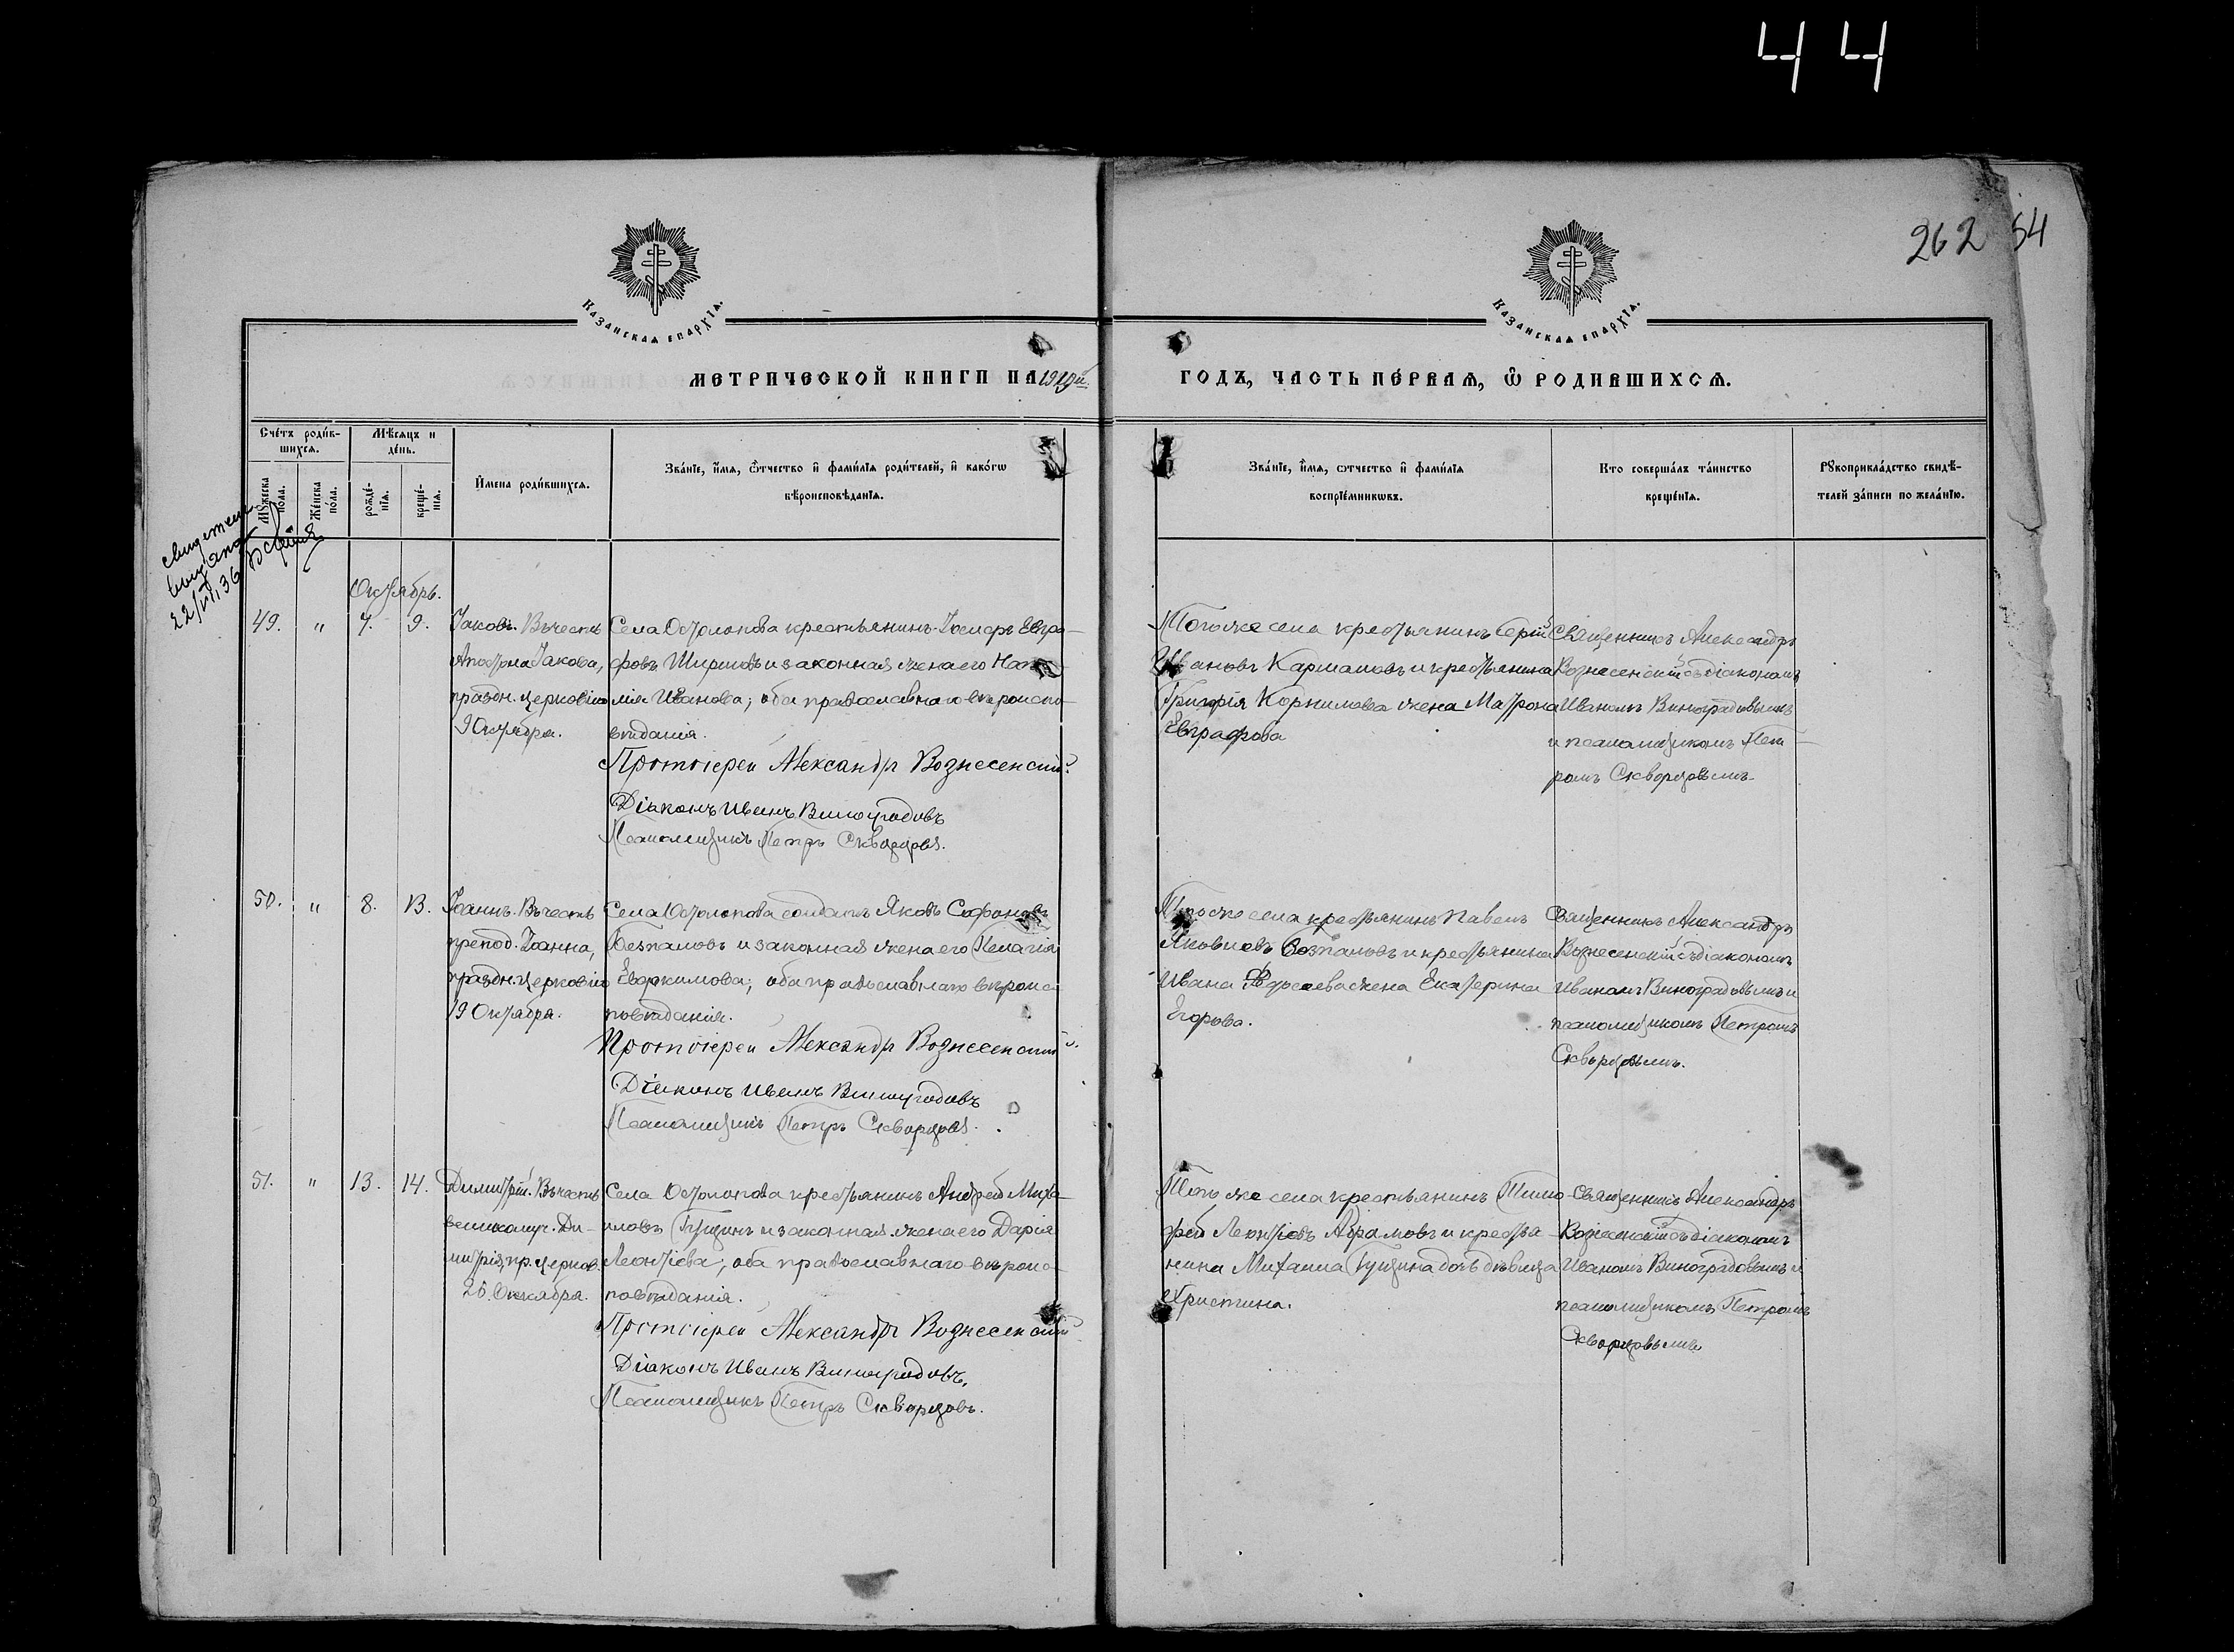 44
262 54
Казанская епархїа.
Казанская епархїа.
МЕТРИЧЕСКОЙ КНИГИ НА 1919й
ГОДЪ, ЧАСТЬ ПЕ́РВАЯ, Ѡ РОДИВШИХСЯ.
Сче́тъ роди́в-
шихсѧ.
Мѣ́сѧцъ и
де́нь.
Мꙋжеска
пола.
Же́нска
пола.
рожде́-
нїѧ.
креще́-
нїѧ.
И́мена роди́вшихсѧ.
Зва́нїе, и́мѧ, ѻ́тчество и҆ фами́лїѧ роди́телей, и҆ како́гѡ
вѣроисповѣ́данїѧ.
Зва́нїе, и́мѧ, ѻтчество и҆ фами́лїѧ
воспрїе́мникѡвъ.
Кто соверша́лъ та́инство
креще́нїѧ.
Рꙋкоприкла́дство свидѣ́-
телей за́писи по жела́нїю.
выдано
22/VI, 36
Октябрь.
49. " 7. 9.
Іаковъ. Въ честь
Апостола Іакова,
праздн. церковію
9 Октября.
Села крестьянинъ Евгра-
фовъ и законная жена его
лія Иванова; оба православнаго вѣроиспо-
вѣданія.
Протоіерей Александръ Вознесенскій.
Діаконъ Иванъ Виноградовъ
Псаломщикъ Петръ Скворцовъ.
Того же села крестьянинъ
Ивановъ и крестьянина
Григорія Корнилова жена Матрона
Евграфова
Священникъ Александръ
Вознесенскій съ діакономъ
Иваномъ Виноградовымъ
и псаломщикомъ Пет-
ромъ Скворцовымъ.
50. " 8. 13.
Іоаннъ. Въ честь
препод. Іоанна,
праздн. церковію
19 Октября.
Села солдатъ Яковъ
и законная жена его Пелагія
Евдокимова; оба православнаго вѣроис-
повѣданія.
Протоіерей Александръ Вознесенскій.
Діаконъ Иванъ Виноградовъ
Псаломщикъ Петръ Скворцовъ.
Того же села крестьянинъ Павелъ
Яковлевъ и крестьянина
Ивана жена Екатерина
Егорова.
Священникъ Александръ
Вознесенскій съ діакономъ
Иваномъ Виноградовымъ и
псаломщикомъ Петромъ
Скворцовымъ.
51. " 13. 14.
Димитрій. Въ честь
великомуч. Ди-
митрія, пр. церков.
26 Октября.
Села крестьянинъ Андрей Миха-
иловъ Гущинъ и законная жена его Дарія
Леонтіева; оба православнаго вѣроис-
повѣданія.
Протоіерей Александръ Вознесенскій
Діаконъ Иванъ Виноградовъ.
Псаломщикъ Петръ Скворцовъ.
Того же села крестьянинъ Тимо-
фей Леонтіевъ Абрамовъ и крестья-
нина Михаила Гущина дочь дѣвица
Христина.
Священникъ Александръ
Вознесенскій съ діакономъ
Иваномъ Виноградовымъ и
псаломщикомъ Петромъ
Скворцовымъ